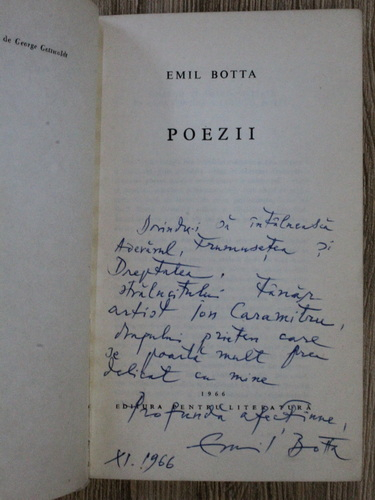 de George Gottwald
EMIL BOTTA
POEZII
Dorindu-i să întîlnească
Adevărul, Frumusețea și
Dreptatea,
strălucitului tânăr
artist Ion Caramitru,
dragului prieten care
se poartă mult prea
delicat cu mine
1966
EDITURA PENTRU LITERATURĂ
Profundă afecțiune,
Emil Botta
XI. 1966